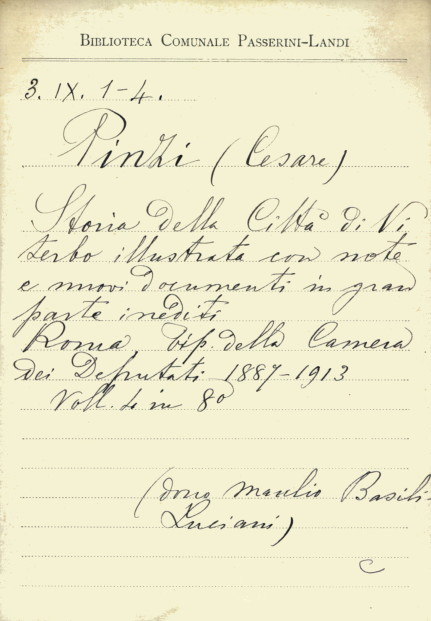 BIBLIOTECA COMUNALE PASSERINI-LANDI
3. IX. 1-4.
Pinzi (Cesare)
Storia della Città di Vi
terbo illustrata con note
e nuovi documenti in gran
parte inediti
Roma, Tip. della Camera
dei Deputati 1887-1913
Voll. 4 in 8º
(dono Manlio Basili-
Luciani)
C